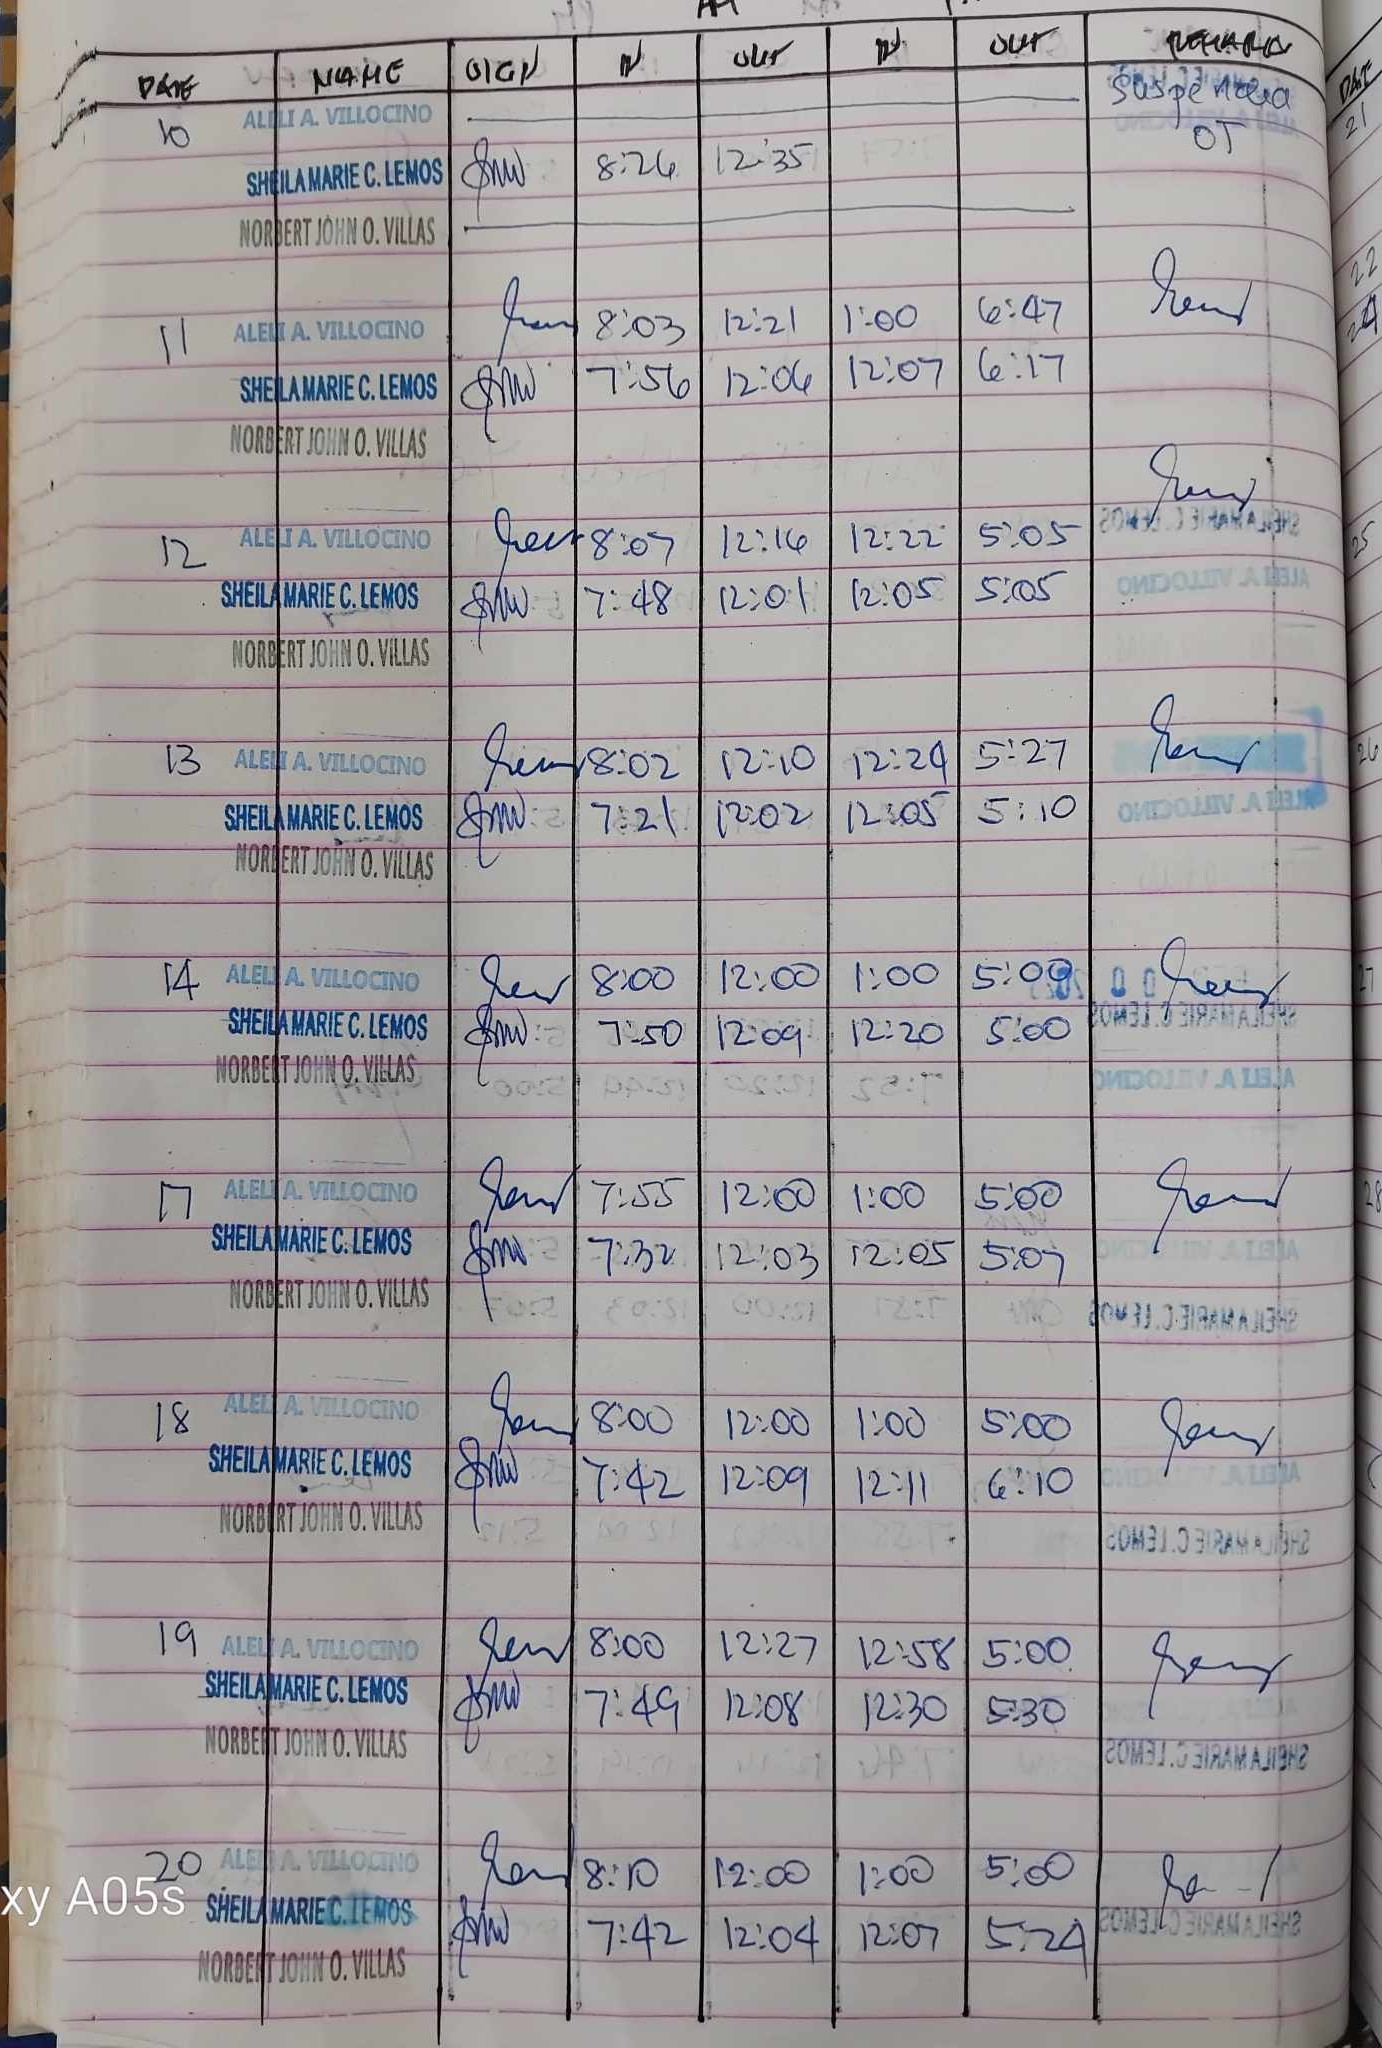 AM
DATE NAME SIGN IN OUT IN OUT REMARKS
10 ALELI A. VILLOCINO
OT
SHEILA MARIE C. LEMOS 8:26 12:35
NORBERT JOHN O. VILLAS
11 ALELI A. VILLOCINO 8:03 12:21 1:00 6:47
SHEILA MARIE C. LEMOS 7:56 12:06 12:07 6:17
NORBERT JOHN O. VILLAS
12 ALELI A. VILLOCINO 8:07 12:16 12:22 5:05
SHEILA MARIE C. LEMOS 7:48 12:01 12:05 5:05
NORBERT JOHN O. VILLAS
13 ALELI A. VILLOCINO 8:02 12:10 12:24 5:27
SHEILA MARIE C. LEMOS 7:21 12:02 12:05 5:10
NORBERT JOHN O. VILLAS
14 ALELI A. VILLOCINO 8:00 12:00 1:00 5:00
SHEILA MARIE C. LEMOS 7:50 12:09 12:20 5:00
NORBERT JOHN O. VILLAS
17 ALELI A. VILLOCINO 7:55 12:00 1:00 5:00
SHEILA MARIE C. LEMOS 7:32 12:03 12:05 5:07
NORBERT JOHN O. VILLAS
18 ALELI A. VILLOCINO 8:00 12:00 1:00 5:00
SHEILA MARIE C. LEMOS 7:42 12:09 12:11 6:10
NORBERT JOHN O. VILLAS
19 ALELI A. VILLOCINO 8:00 12:27 12:58 5:00
SHEILA MARIE C. LEMOS 7:49 12:08 12:30 5:30
NORBERT JOHN O. VILLAS
20 ALELI A. VILLOCINO 8:10 12:00 1:00 5:00
SHEILA MARIE C. LEMOS 7:42 12:04 12:07 5:24
NORBERT JOHN O. VILLAS
xy A05s
DATE
21
22
24
25
26
27
28